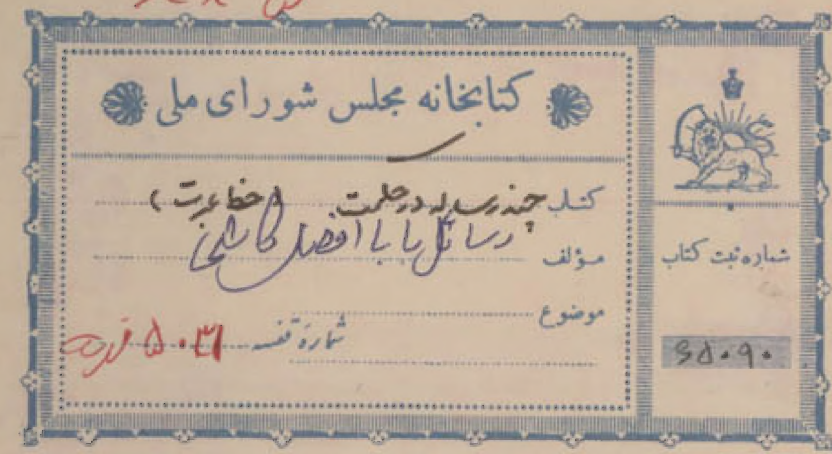 کتابخانه مجلس شورای ملی
کتاب چند رساله در حکمت (خط عبرت)
رسائل بابا افضل کاشی
مؤلف
موضوع
شمارهٔ قفسه
شماره ثبت کتاب
۶۵۰۹۰